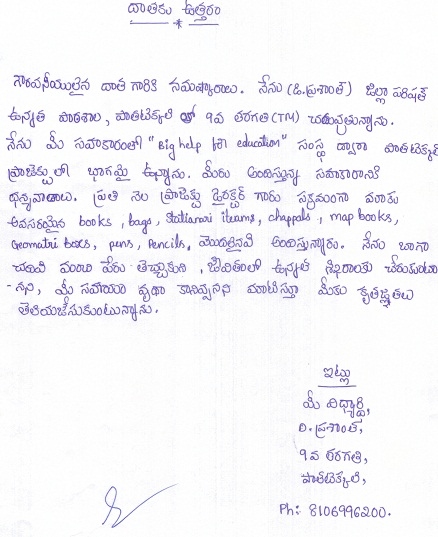 దాతకు ఉత్తరం
గౌరవనీయులైన దాత గారికి నమష్కారాలు. నేను (డి.ప్రశాంత్) జిల్లా పరిషత్
ఉన్నత పాఠశాల, పాతటెక్కలి లో 9వ తరగతి (TM) చదువుతున్నాను.
నేను మీ సహకారంతో "Big help for education" సంస్థ ద్వారా పాతటెక్కలి
ప్రాజెక్టులో భాగమై ఉన్నాను. మీరు అందిస్తున్న సహకారానికి
ధన్యవాదాలు. ప్రతి నెల ప్రాజెక్టు డైరెక్టర్ గారు సక్రమంగా మాకు
అవసరమైన books, bags, Stationari iteams, chappals, map books,
Geomatri boxes, pens, Pencils, మొదలైనవి అందిస్తున్నారు. నేను బాగా
చదివి మంచి పేరు తెచ్చుకుని, జీవితంలో ఉన్నత శిఖరాలకు చేరుకుంటా
-నని, మీ సహాయం వృథా కానివ్వనని మాటిస్తూ మీకు కృతజ్ఞతలు
తెలియజేసుకుంటున్నాను.
ఇట్లు
మీ విద్యార్థి,
డి.ప్రశాంత్,
9వ తరగతి,
పాతటెక్కలి,
Ph: 8106996200.